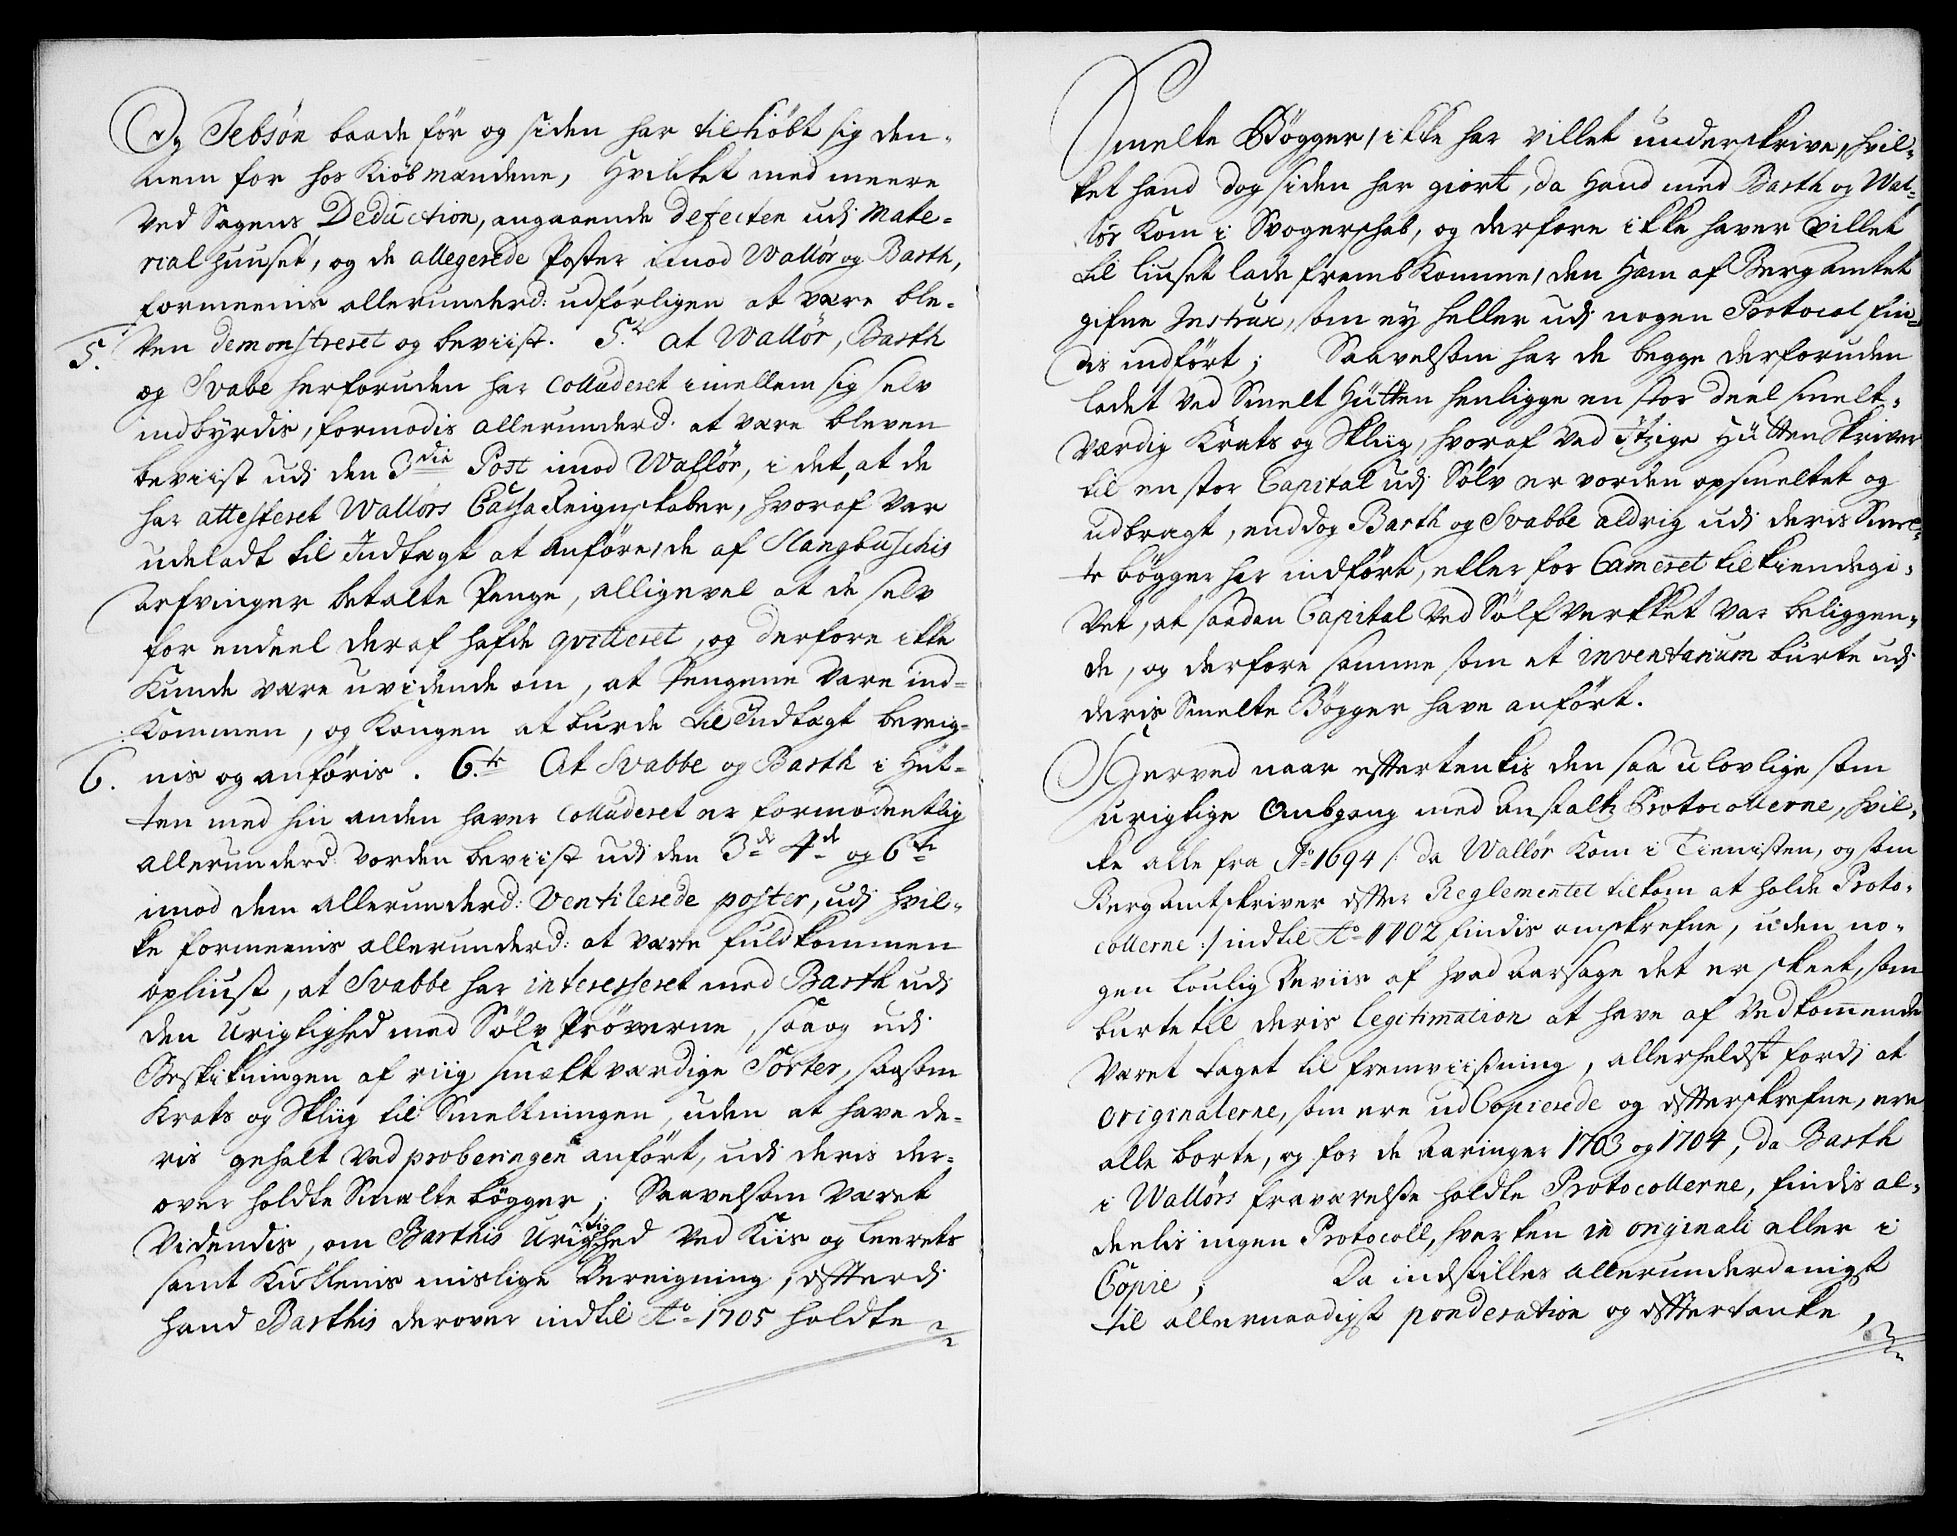 Og Jebsøn baade før og siden har tilkiøbt sig den,
nem for hos Kiøbmændene, Hvilcket med meere
Ved Sagens Deduction, angaaende defecten udj Mate-
rial Huuset, og de allegerede Poster imod Wallør og Barth,
formeenis allerunderd: udførligen at være ble-
5. Ven demonstreret og beviist. 5te at Wallør, Barth
og Svabe herforuden har colluderet imellem sig selv
indbyrdis, formodis allerunderd. at være bleven
beviist udj den 3die Post imod Wallør, i det, at de
har attesteret Wallørs Cassa Reignskaber, hvoraf var
udeladt til Indtægt at anføre, de af Slangbuschis
Arfvinger betalte Penge, alligevel at de selv
for endeel deraf hafde qvitteret, og derfore ikke
Kunde være uvidende om, at Pengene vare ind-
Kommen, og Kongen at burde til Indtægt bereig-
6. nis og anføris. 6te At Svabbe og Barth i Hüt-
ten med hin anden haver colluderet er formodentlig
allerunderd: vorden beviist udj den 3de 4de og 6te
imod dem allerunderd: Ventilerede poster, udj hvil-
ke formeenis allerunderd: at være fuldkommen
opliust, at Svabbe har interesseret med Barth udj
den Urigtighed med Sølv Prøverne, saa og udj
Beskikningen af riig smeltværdige Sorter, saasom
Krats og Skliig til Smeltningen, uden at have de-
ris gehalt Ved proberingen anført, udj deris der-
over holdte Smelte bøgger; Saavelsom Været
Videndis, om Barthis Urigtighed Ved Kiis og Leerets
samt Kullenis mislige Bereigning, efterdj
hand Barthis derover indtil Ao 1705 holdte
Smelte Bøgger, ikke har villet underskrive, hvil-
ket hand dog siden har giort, da Hand med Barth og Wal-
lør Kom i Svogerskab, og derfore ikke haver villet
til liuset lade frembkomme, den Ham af Bergamtet
gifne Instrux, som ey heller udj nogen Protocol fin-
dis indført; Saavelsom har de begge derforuden
ladet Ved Smelt Hütten henligge en stor deel smelt-
værdig Krats og Skliig, hvoraf Ved itzige Hütten Skriver
til en stor Capital udj Sølv er vorden opsmeltet og
udbragt, enddog Barth og Svabbe aldrig udj deris Smel-
te bøgger har indført, eller for Cameret tilkiendegi-
Vet, at saadan Capital Ved Sølf Verkket var beliggen-
de, og derfore samme som et inventarium burte udj
deris Smelte Bøgger have anført.
Herved naar eftertenkis den saa ulovlige som
urigtige Ombgang med anstalts Protocollerne, hvil-
ke alle fra Ao 1694 /: da Wallør Kom i Tienisten, og som
Bergamtskriver efter Reglementet tilkom at holde Proto-
collerne :/ indtil Ao 1702 findis omskrefne, uden no-
gen Loulig Beviis af hvad Aarsage det er skeet, som
burte til deris legitimation at have af Vedkommende
Været taget til fremviisning, allerheldst fordj at
originalerne, som ere udCopierede og efterskrefne, ere
alle borte, og for de Aaringer 1703 og 1704, da Barth
i Wallørs fraværelse holdte Protocollerne, findis al-
deelis ingen Protocoll, hverken in originali eller i
Copie; Da indstilles allerunderdanigst
til allernaadigst ponderation og eftertanke